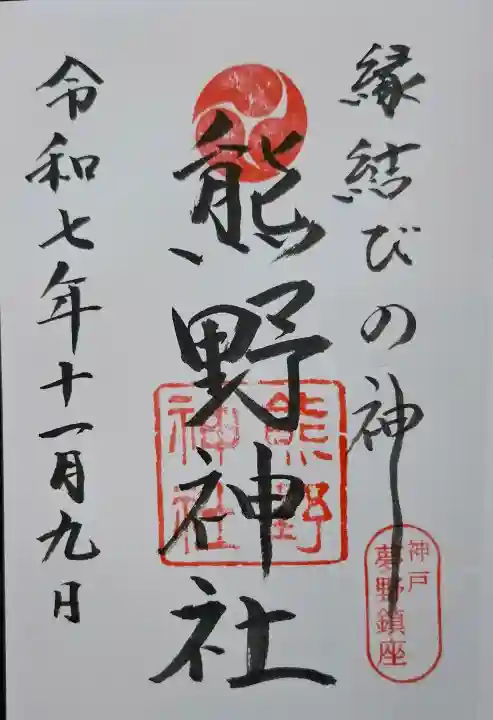 縁結びの神
神戸
夢野鎮座
熊野神社
熊野
神社
令和七年十一月九日